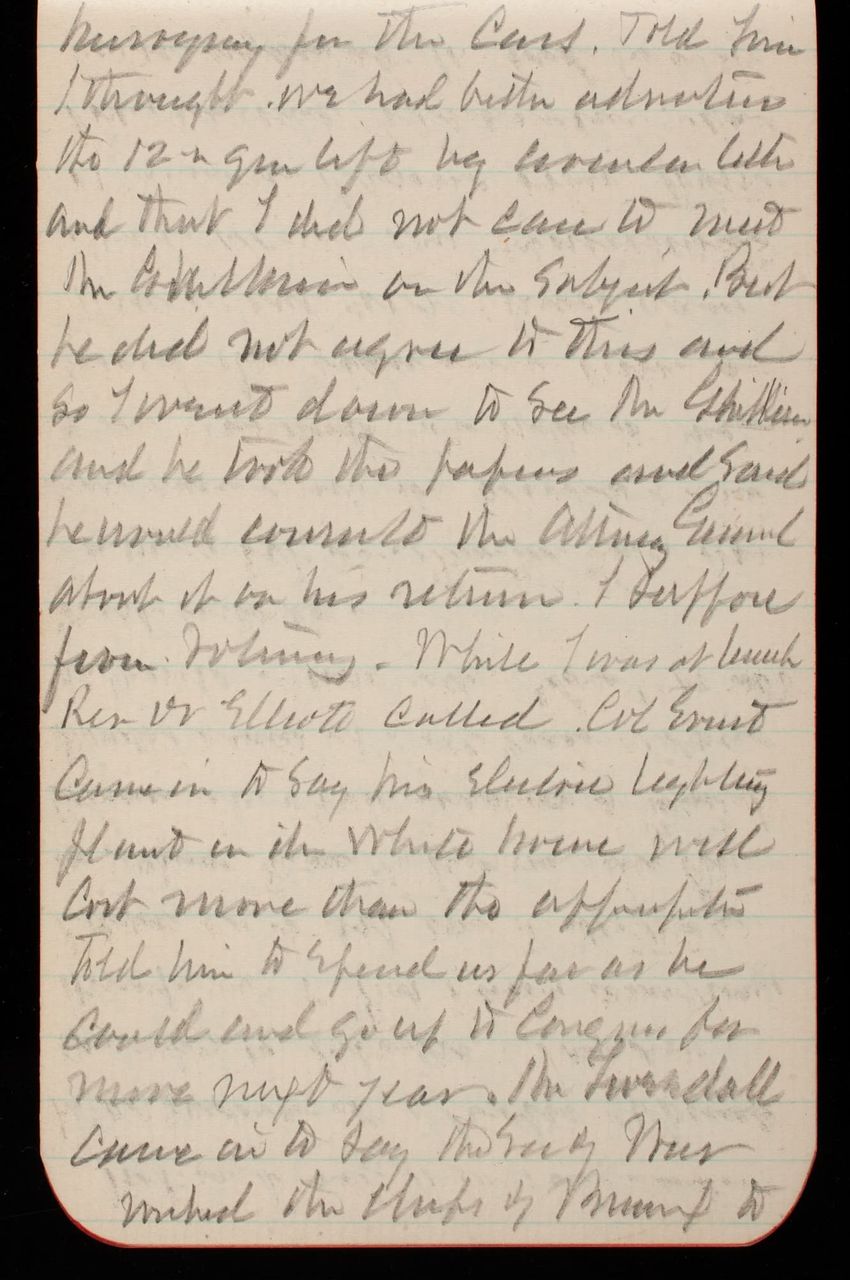 for the Cars. Told him
I thought we had better advertise
the 12-in gun lift by circular letter
and that I did not care to meet
the on the subject. But
he did not agree to this and
so I went down to see the
and he took the papers and said
he would consult the Attorney General
about it on his return. I suffer
from. While I was at lunch
Rev Dr Elliott called. Col Ernst
Came in to say his Electric lighting
plant in the White house will
Cost more than the
Told him to spend as far as he
could and go up to Congress for
more next year. Mr Tweedall
came in to say the Secy War
wished the chiefs of Bureaux to